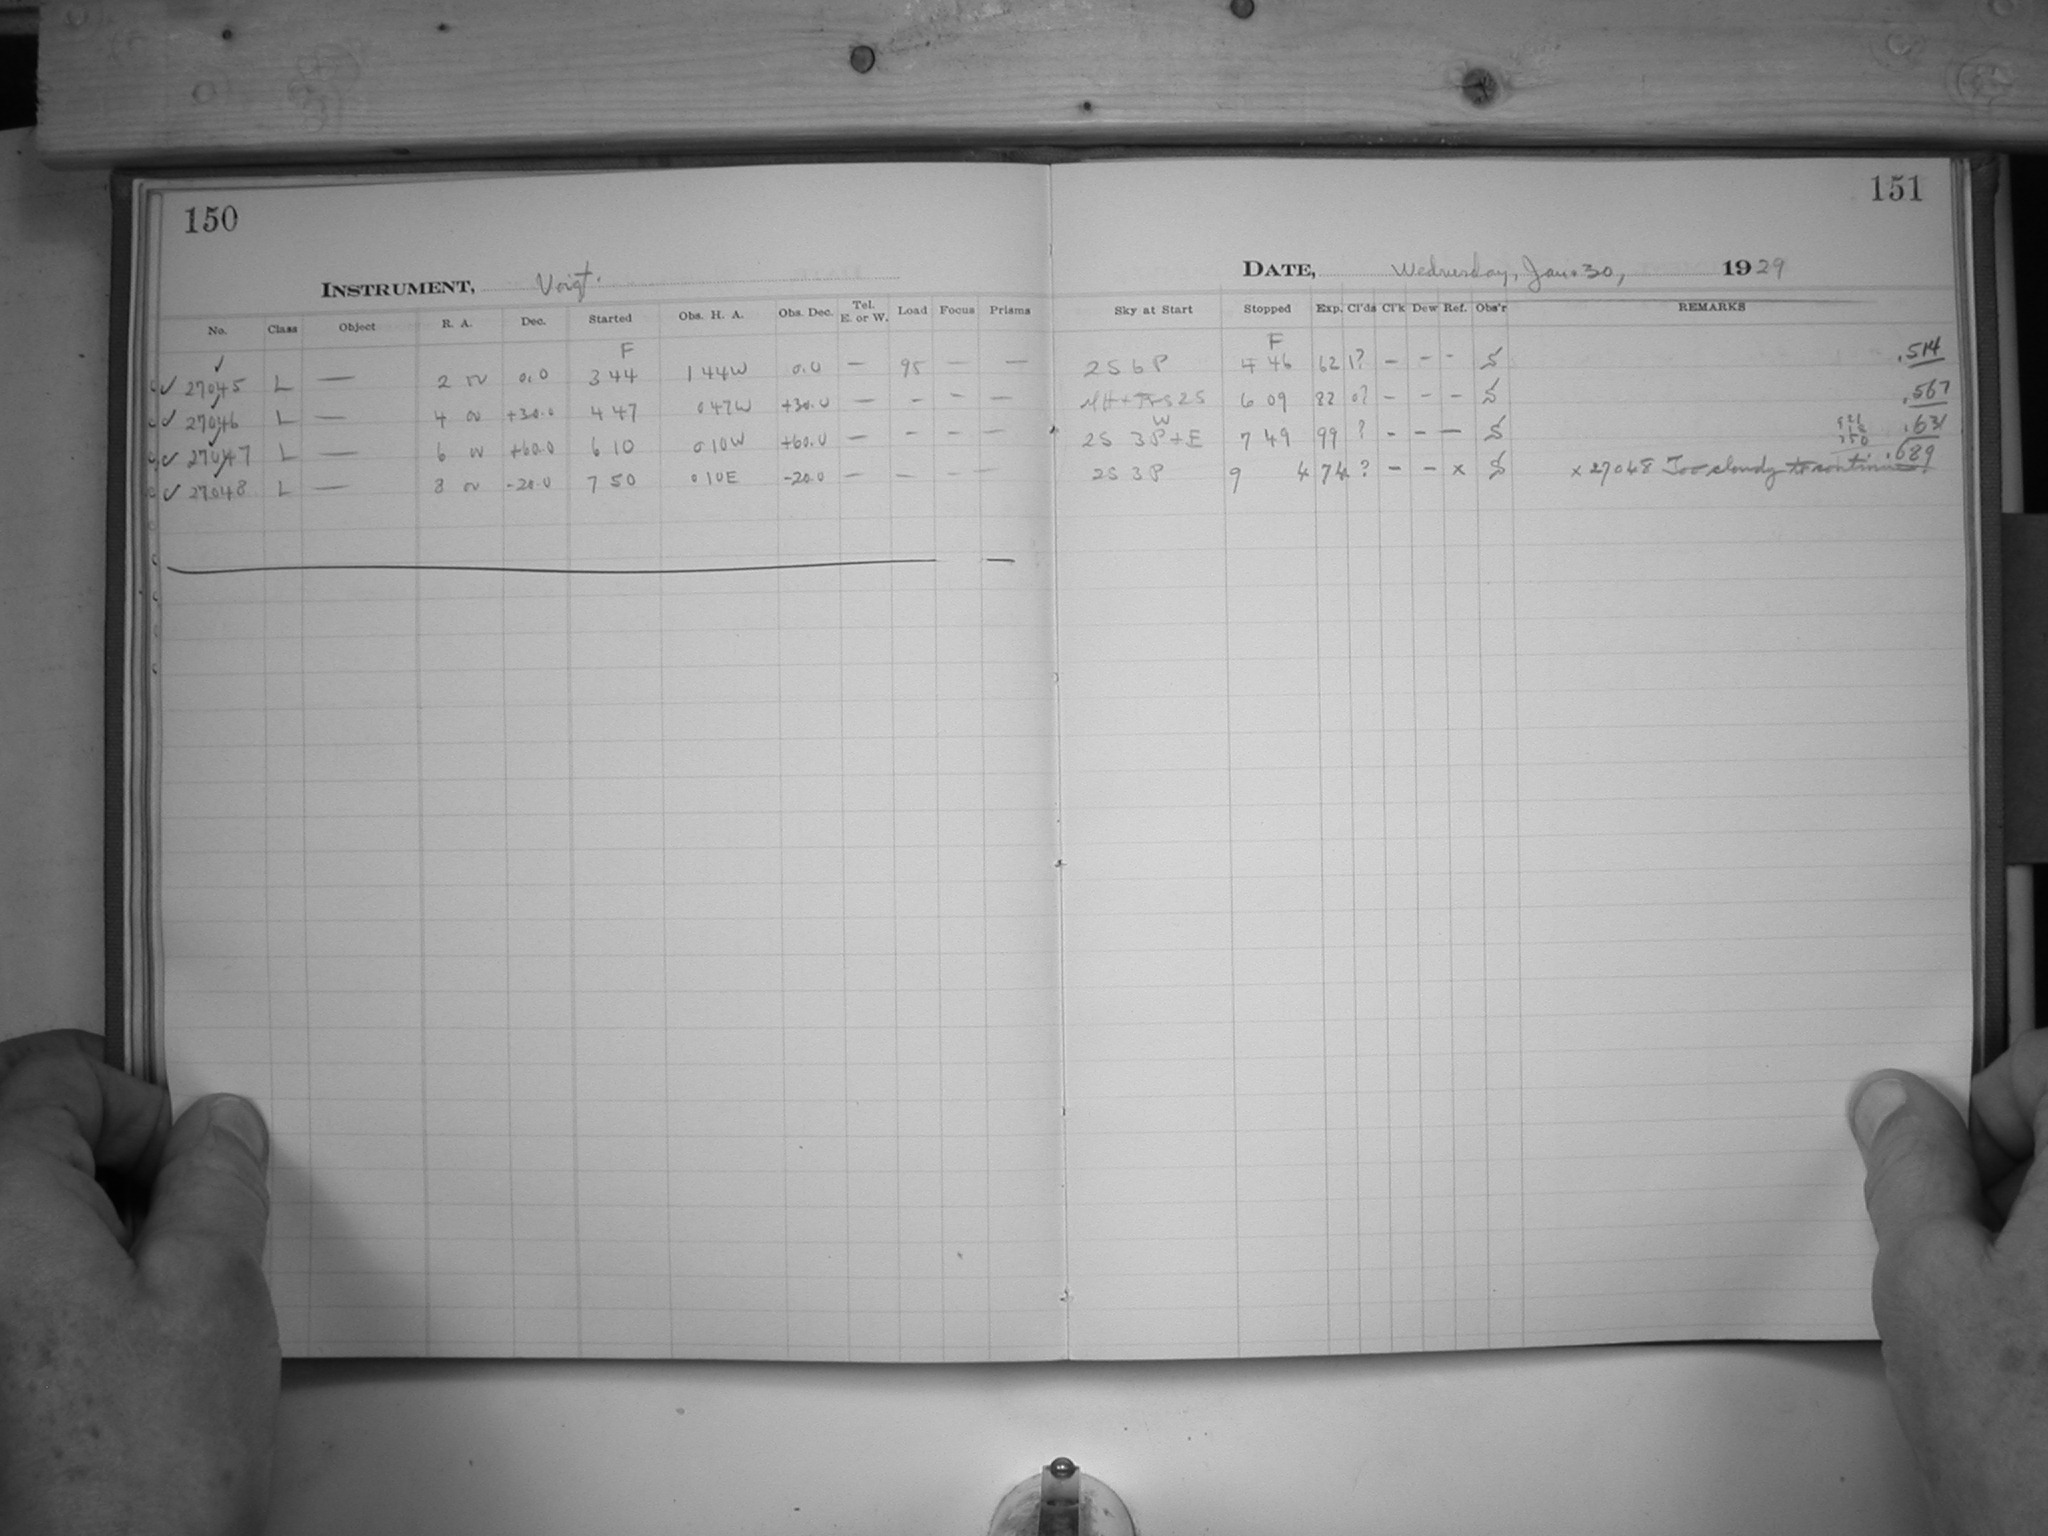 150
151
INSTRUMENT, Voigt.
DATE, Wednesday, Jan. 30, 1929
No. Class Object R. A. Dec. Started Obs. H. A. Obs. Dec. Tel. E. or W. Load Focus Prisms Sky at Start Stopped Exp. Cl'ds Cl'k Dew Ref. Obs'r REMARKS
F F
✓ 27045 L — 2 00 0.0 3 44 1 44W 0.0 — 95 — — 2S 6P 4 46 62 1? – – – S .514
✓ 27046 L — 4 00 +30.0 4 47 0 47W +30.0 — – – — 2S 6 09 82 0? – – – S .567
✓ 27047 L — 6 00 +60.0 6 10 0 10W +60.0 — – – — 2S 3P+E W 7 49 99 ? – – — S .631
✓ 27048 L — 8 00 -20.0 7 50 0 10E -20.0 — — – – 2S 3P 9 4 74 ? – – x S x 27048 Too cloudy to continue. .689